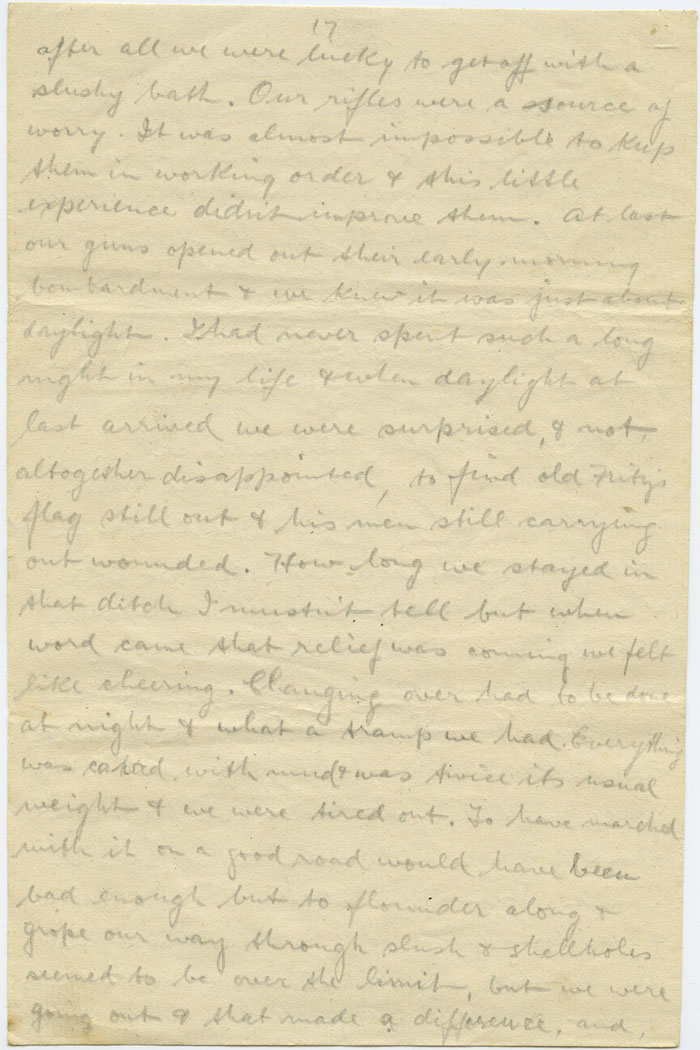 17
after all we were lucky to get off with a
slushy bath. Our rifles were a source of
worry. It was almost impossible to keep
them in working order & this little
experience didn't improve them. At last
our guns opened out their early morning
bombardment & we knew it was just about
daylight. I had never spent such a long
night in my life & when daylight at
last arrived we were surprised, & not
altogether disappointed, to find old Fritz's
flag still out & his men still carrying
out wounded. How long we stayed in
that ditch I mustn't tell but when
word came that relief was coming we felt
like cheering. Changing over had to be done
at night & what a tramp we had. Everything
was caked with mud & was twice its usual
weight & we were tired out. To have marched
with it on a good road would have been
bad enough but to flounder along &
grope our way through slush & shellholes
seemed to be over the limit, but we were
going out & that made a difference, and,